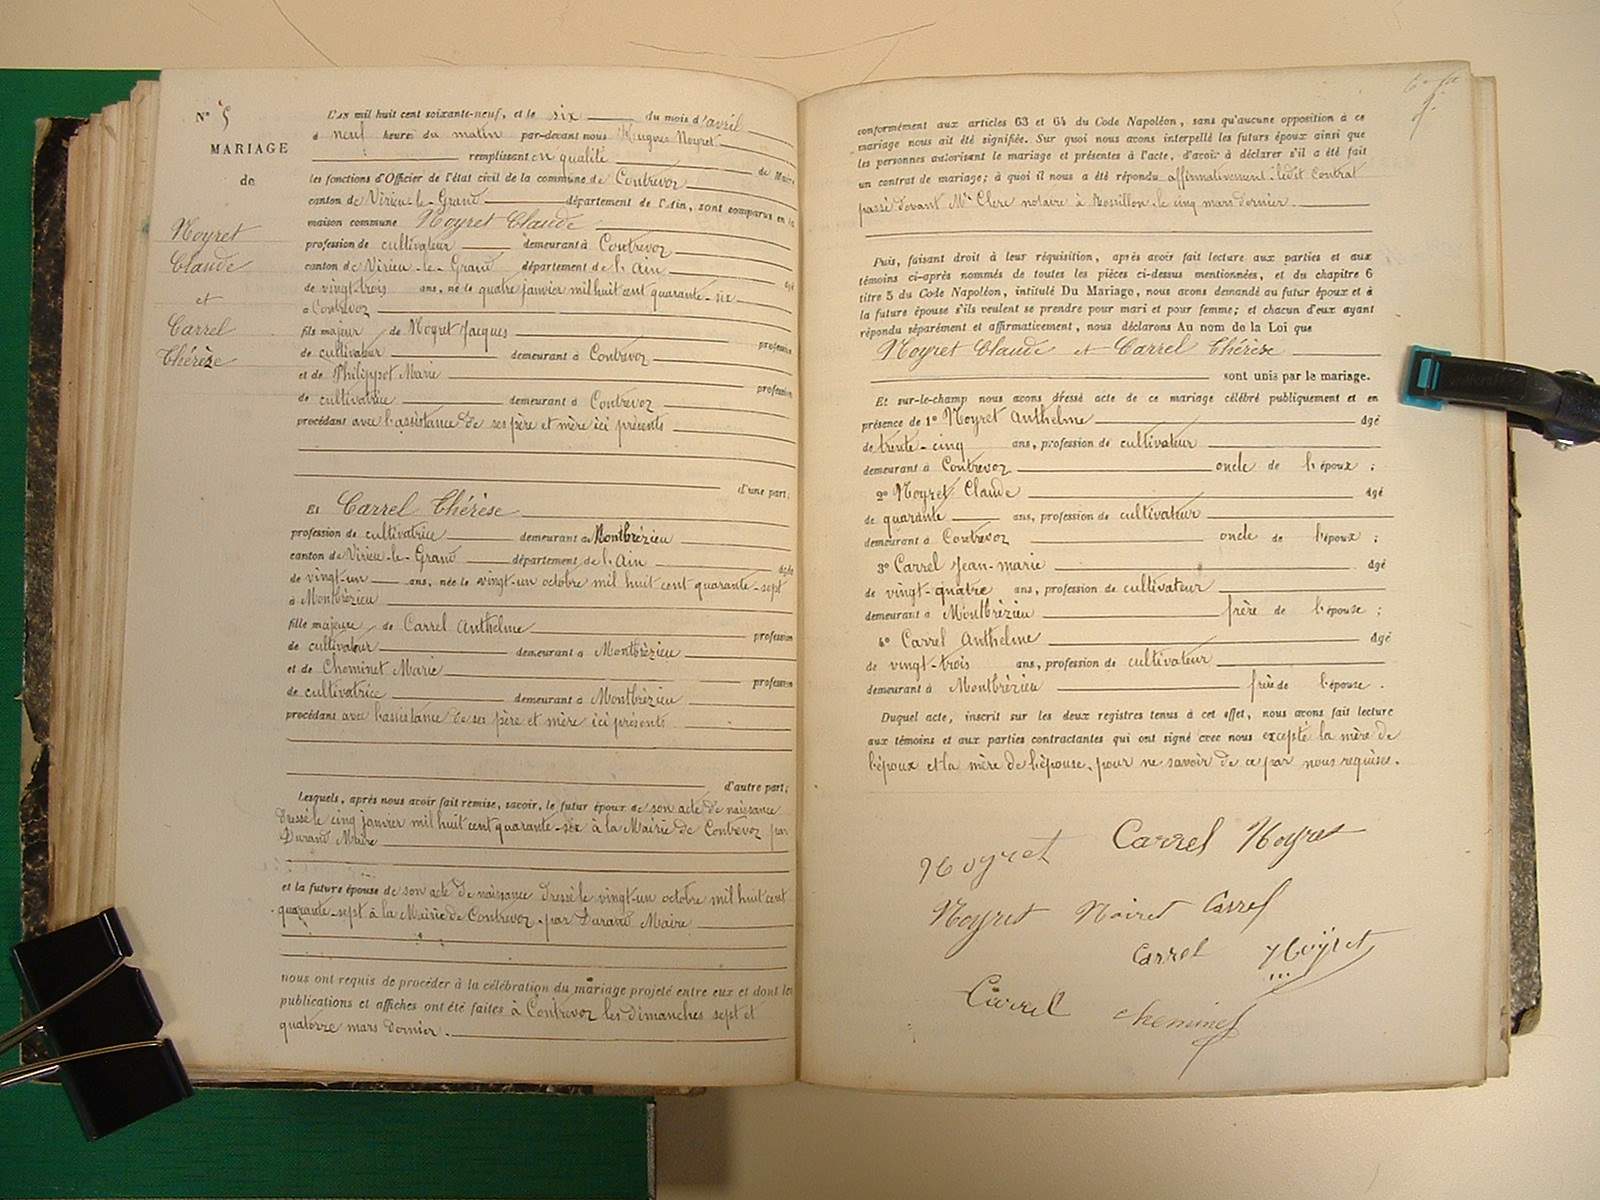 N° 5
MARIAGE
de
Noyret
Claude
et
Carrel
Thérèse
L'AN mil huit cent soixante-neuf, et le six du mois d'avril
à neuf heures du matin par-devant nous Hugues Noyret
remplissant en qualité de Maire
les fonctions d'Officier de l'état civil de la commune de Contrevoz
canton de Virieu-le-Grand département de l'Ain, sont comparus en la
maison commune Noyret Claude
profession de cultivateur demeurant à Contrevoz
canton de Virieu-le-Grand département de l'Ain âgé
de vingt-trois ans, né le quatre janvier mil huit cent quarante-six
à Contrevoz
fils majeur de Noyret Jacques profession
de cultivateur demeurant à Contrevoz
et de Philippot Marie profession
de cultivatrice demeurant à Contrevoz
procédant avec l'assistance de ses père et mère ici présents
d'une part;
Et Carrel Thérèse
profession de cultivatrice demeurant à Montbrézieu
canton de Virieu-le-Grand département de l'Ain âgée
de vingt-un ans, née le vingt-un octobre mil huit cent quarante-sept
à Montbrézieu
fille majeure de Carrel Anthelme profession
de cultivateur demeurant à Montbrézieu
et de Cheminet Marie profession
de cultivatrice demeurant à Montbrézieu
procédant avec l'assistance de ses père et mère ici présents
d'autre part;
Lesquels, après nous avoir fait remise, savoir, le futur époux de son acte de naissance
dressé le cinq janvier mil huit cent quarante-six à la Mairie de Contrevoz par
Durand Maire
et la future épouse de son acte de naissance dressé le vingt-un octobre mil huit cent
quarante-sept à la Mairie de Contrevoz par Durand Maire
nous ont requis de procéder à la célébration du mariage projeté entre eux et dont les
publications et affiches ont été faites à Contrevoz les dimanches sept et
quatorze mars dernier.
conformément aux articles 63 et 64 du Code Napoléon, sans qu'aucune opposition à ce
mariage nous ait été signifiée. Sur quoi nous avons interpellé les futurs époux ainsi que
les personnes autorisant le mariage et présentes à l'acte, d'avoir à déclarer s'il a été fait
un contrat de mariage; à quoi il nous a été répondu affirmativement ledit contrat
passé devant Me Clerc notaire à Rossillon le cinq mars dernier.
Puis, faisant droit à leur réquisition, après avoir fait lecture aux parties et aux
témoins ci-après nommés de toutes les pièces ci-dessus mentionnées, et du chapitre 6
titre 5 du Code Napoléon, intitulé Du Mariage, nous avons demandé au futur époux et à
la future épouse s'ils veulent se prendre pour mari et pour femme; et chacun d'eux ayant
répondu séparément et affirmativement, nous déclarons Au nom de la Loi que
Noyret Claude et Carrel Thérèse
sont unis par le mariage.
Et sur-le-champ nous avons dressé acte de ce mariage célébré publiquement et en
présence de 1° Noyret Anthelme âgé
de trente-cinq ans, profession de cultivateur
demeurant à Contrevoz oncle de l'époux;
2° Noyret Claude âgé
de quarante ans, profession de cultivateur
demeurant à Contrevoz oncle de l'époux;
3° Carrel Jean-marie âgé
de vingt-quatre ans, profession de cultivateur
demeurant à Montbrézieu frère de l'épouse;
4° Carrel Anthelme âgé
de vingt-trois ans, profession de cultivateur
demeurant à Montbrézieu frère de l'épouse.
Duquel acte, inscrit sur les deux registres tenus à cet effet, nous avons fait lecture
aux témoins et aux parties contractantes qui ont signé avec nous excepté la mère de
l'époux et la mère de l'épouse, pour ne savoir de ce par nous requises.
Noyret Carrel Noyret
Noyret Noiret Carrel
Carrel Noÿret
Carrel Cheminet